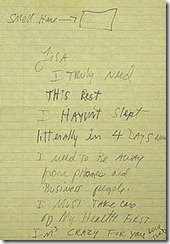 Smell Here →
LiSA
I Truly Need
THiS Rest
I HAVIN'T Slept
litterally in 4 DAYS now
I NEED to Be AWAY
from phones and
Business people.
I MUST TAKE CARE
of My HealtH FiRST
I'M CRAZY FoR You